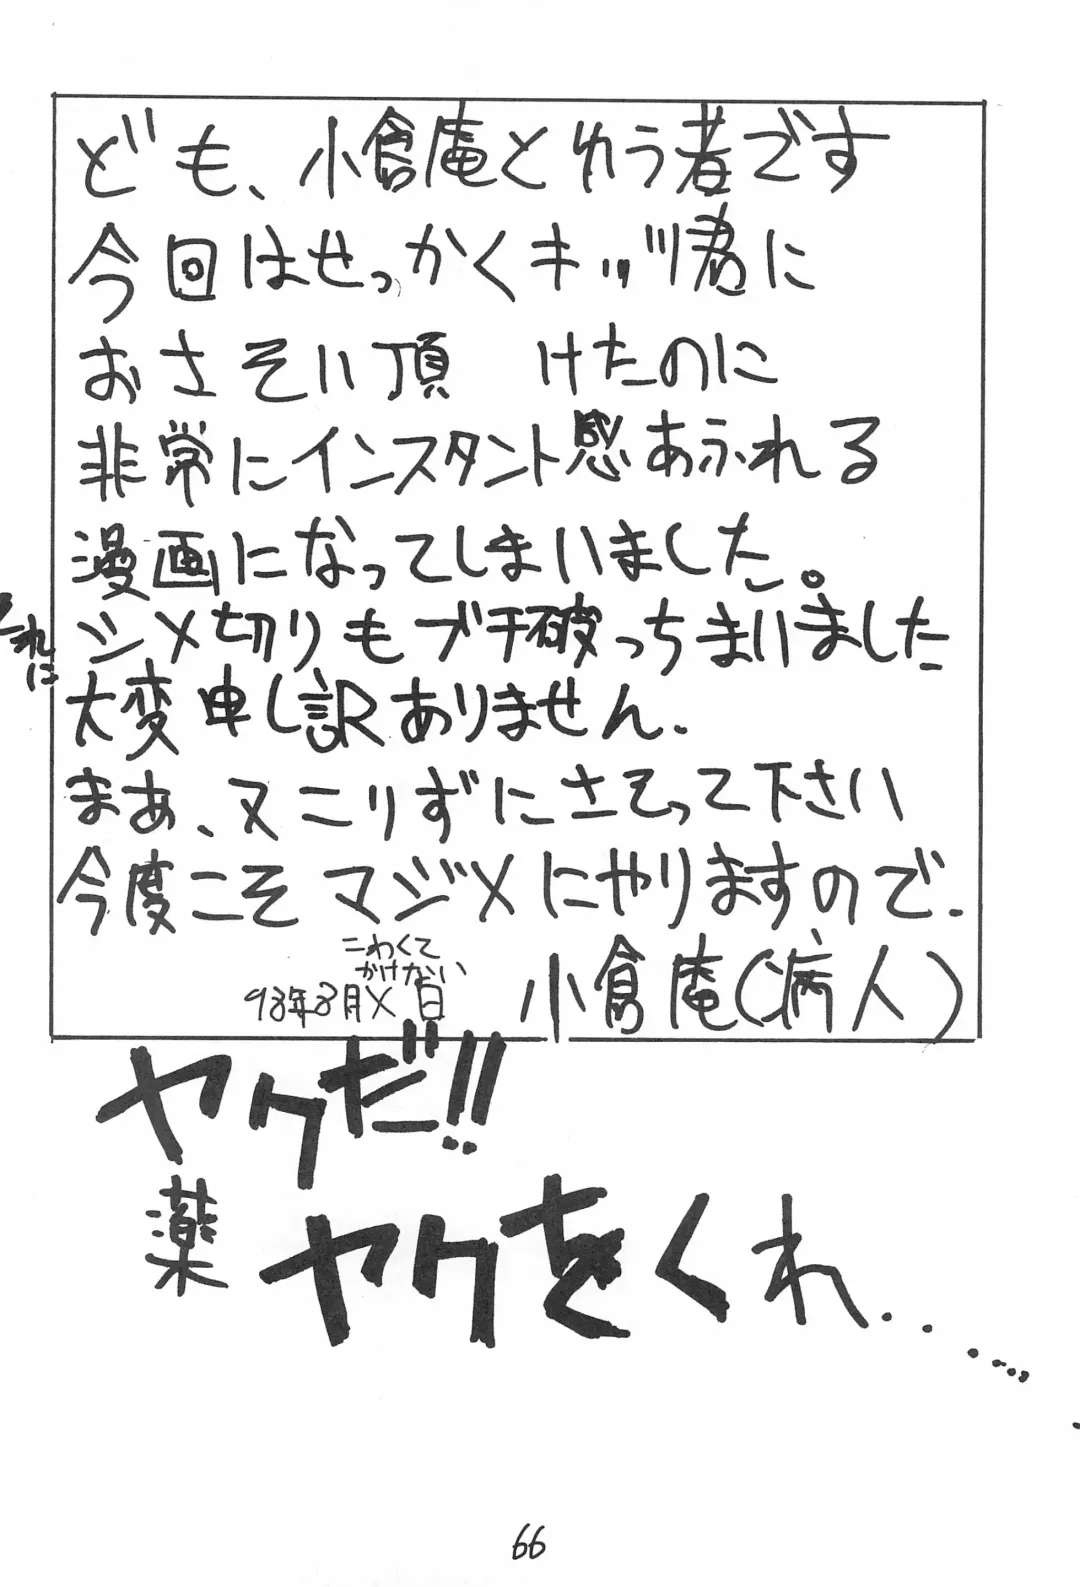 ども、小倉庵とゆう者です
今回はせっかくキッヅ君に
おさそい頂けたのに
非常にインスタント感あふれる
漫画になってしまいました。
それに
シメ切りもブチ破っちまいました
大変申し訳ありません.
まあ、又こりずにさそって下さい
今度こそマジメにやりますので.
こわくて
かけない
93年8月×日
小倉庵(病人)
ヤクだ!!
薬
ヤクをくれ.......
66